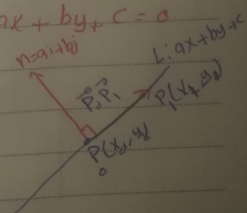 ax + by + c = 0
n=ai+bj
L: ax+by+c
P₀P₁
P₁(x₁,y₁)
P₀(x₀,y₀)